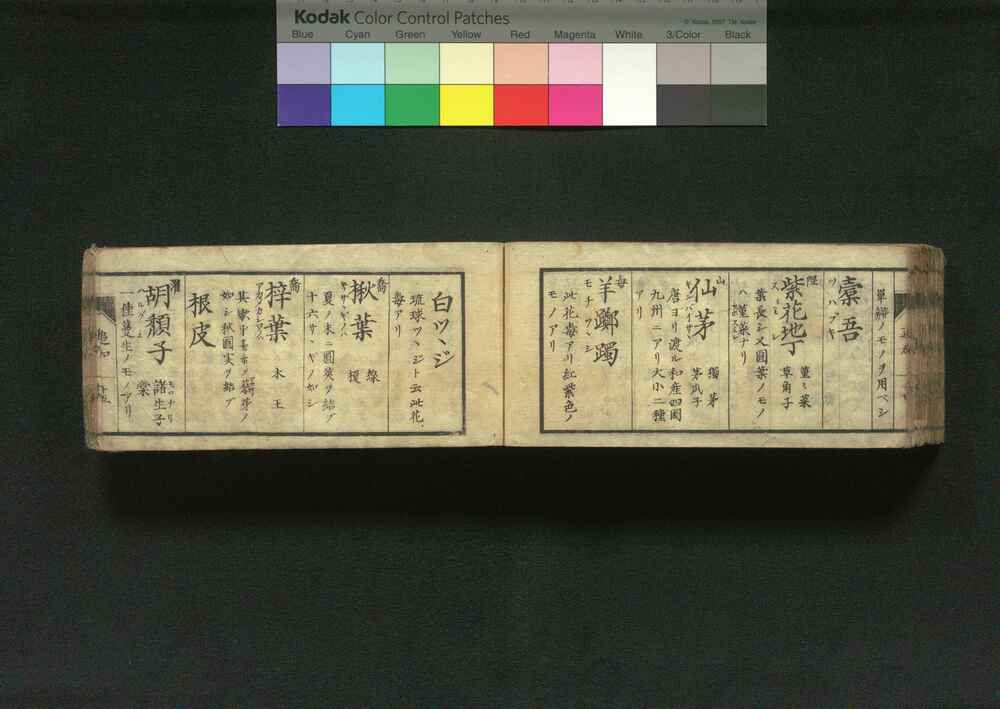 Kodak Color Control Patches
© Kodak, 2007 TM: Kodak
Blue Cyan Green Yellow Red Magenta White 3/Color Black
單瓣ノモノヲ用ベシ
橐吾
ツハブキ
紫花地丁
菫々菜
草角子
スミレ
葉長シ又圓葉ノモノ
ハ菫菜ナリ
仙茅
獨茅
茅瓜子
唐ヨリ渡ル和産四國
九州ニアリ大小二種
アリ
羊躑躅
モチツヽシ
此花毒アリ紅紫色ノ
モノアリ
白ツヽジ
琉球ツヽジト云此花
毒アリ
楸葉
榎
夏ノ末ニ圓莢ヲ結ブ
十六サヽギノ如シ
梓葉
木王
アカメカシワノハ
如シ秋圓実ヲ結ブ
根皮
胡頽子
モロナリ
諸生子
棠
一種蔓生ノモノアリ
追加